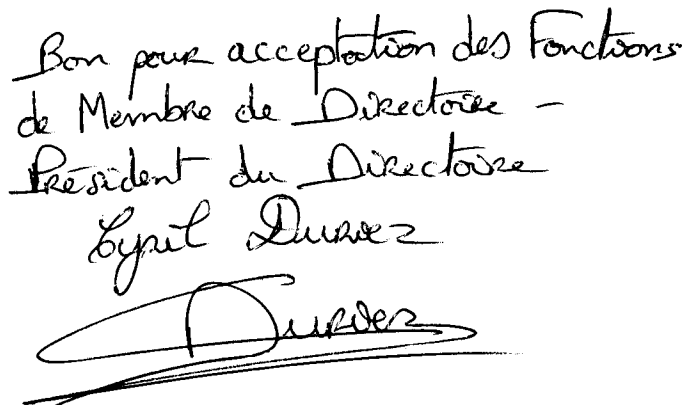 Bon pour acceptation des Fonctions
de Membre de Directoire -
Président du Directoire
Cyril Duriez